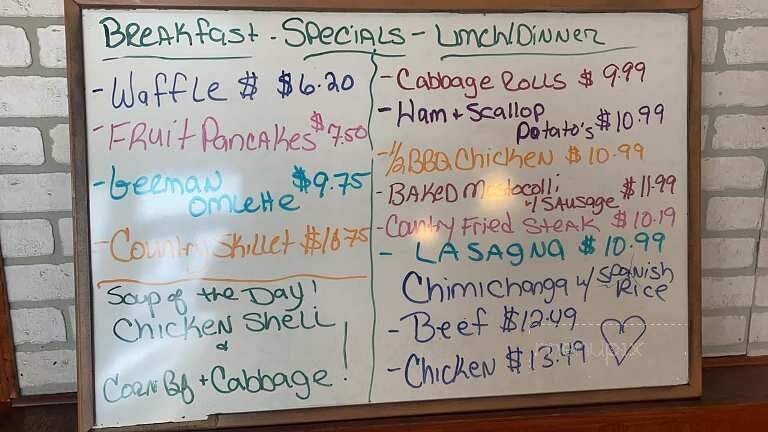 BREAKfast - SPECIALS - Lunch/Dinner
- Waffle $ $6.20
- FRUIT PANCAKES $7.50
- German $9.75
OMLette
- Country Skillet $10.75
Soup of the Day!
CHICKEN SHELL
&
Corn Bf + Cabbage!
- Cabbage Rolls $ 9.99
- Ham + Scallop
Potato's $10.99
- 1/2 BBQ Chicken $ 10.99
- BAKED Mostocolli $11.99
w/ SAUSAGE
- Country Fried Steak $ 10.19
- LASAGNA $ 10.99
Chimichanga w/ Spanish
Rice
- Beef $12.49
- Chicken $13.49
menupix